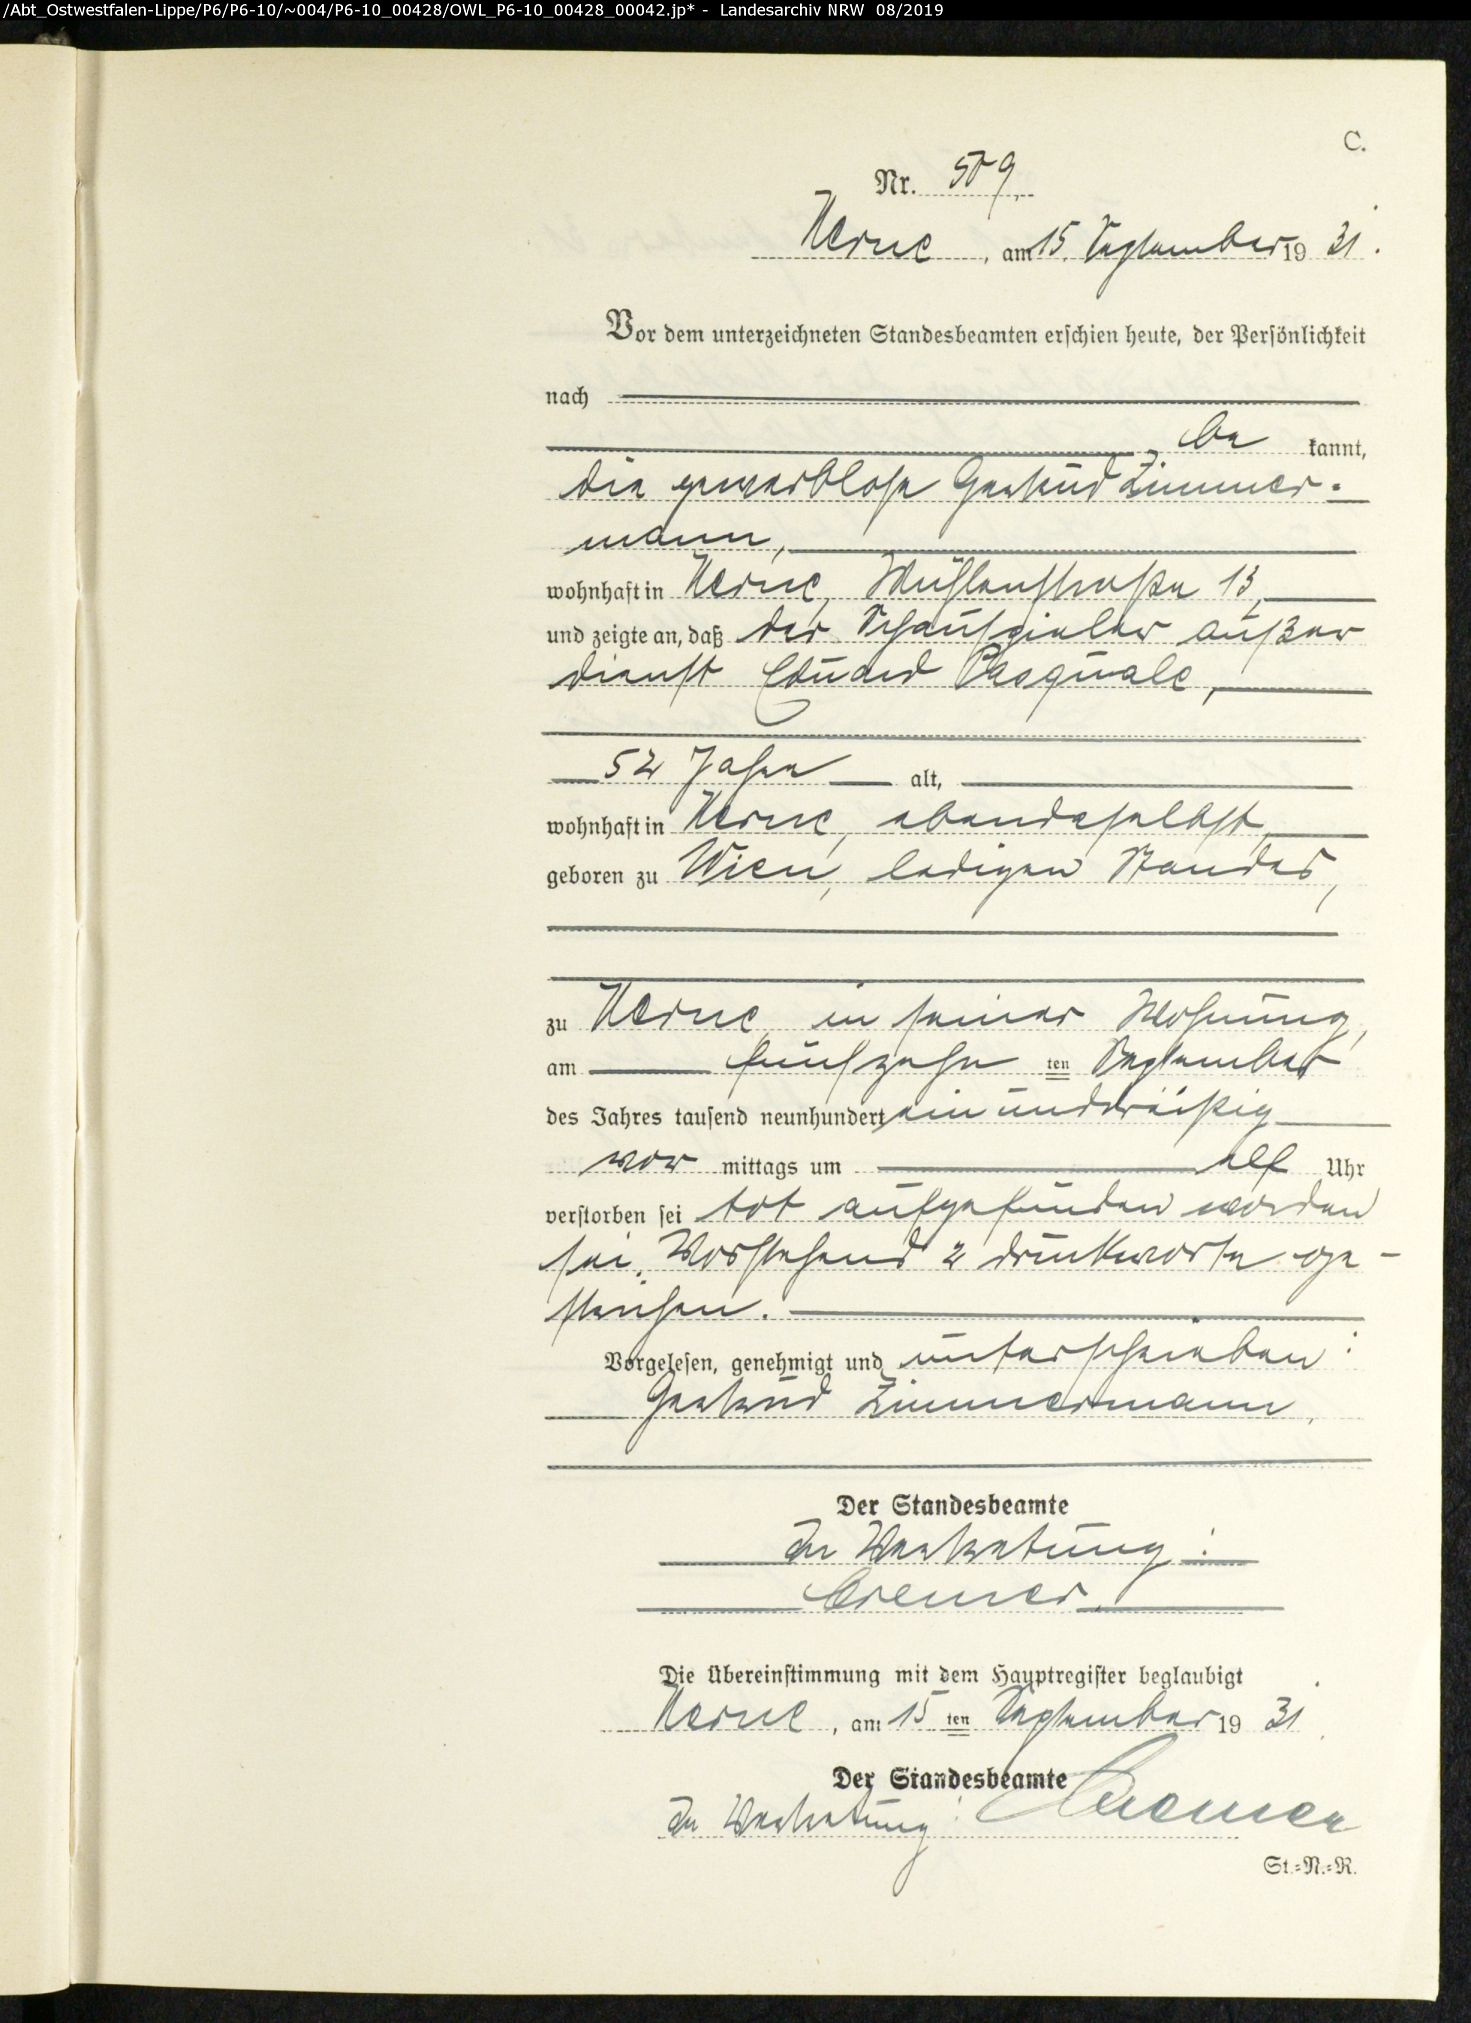 /Abt_Ostwestfalen-Lippe/P6/P6-10/~004/P6-10_00428/OWL_P6-10_00428_00042.jp* - Landesarchiv NRW 08/2019
C.
Nr. 509.
Herne, am 15. September 1931.
Vor dem unterzeichneten Standesbeamten erschien heute, der Persönlichkeit
nach
be kannt,
die gewerblose Gertrud Zimmer-
mann,
wohnhaft in Herne, Mühlenstraße 13,
und zeigte an, daß der Schauspieler außer
dienst Eduard Pasquale,
52 Jahre alt,
wohnhaft in Herne, ebendaselbst,
geboren zu Wien, ledigen Standes,
zu Herne in seiner Wohnung,
am fünfzehn ten September
des Jahres tausend neunhundert einunddreißig
vor mittags um elf Uhr
verstorben sei tot aufgefunden worden
sei. Vorstehend 2 Druckworte ge-
strichen.
Vorgelesen, genehmigt und unterschrieben:
Gertrud Zimmermann.
Der Standesbeamte
In Vertretung:
Cremer.
Die Übereinstimmung mit dem Hauptregister beglaubigt
Herne, am 15 ten September 1931.
Der Standesbeamte
In Vertretung: Cremer
St.=N.=R.